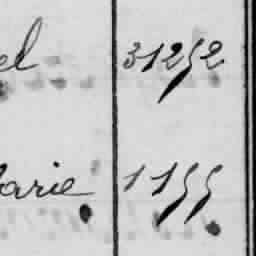 el 31252
arie 1155